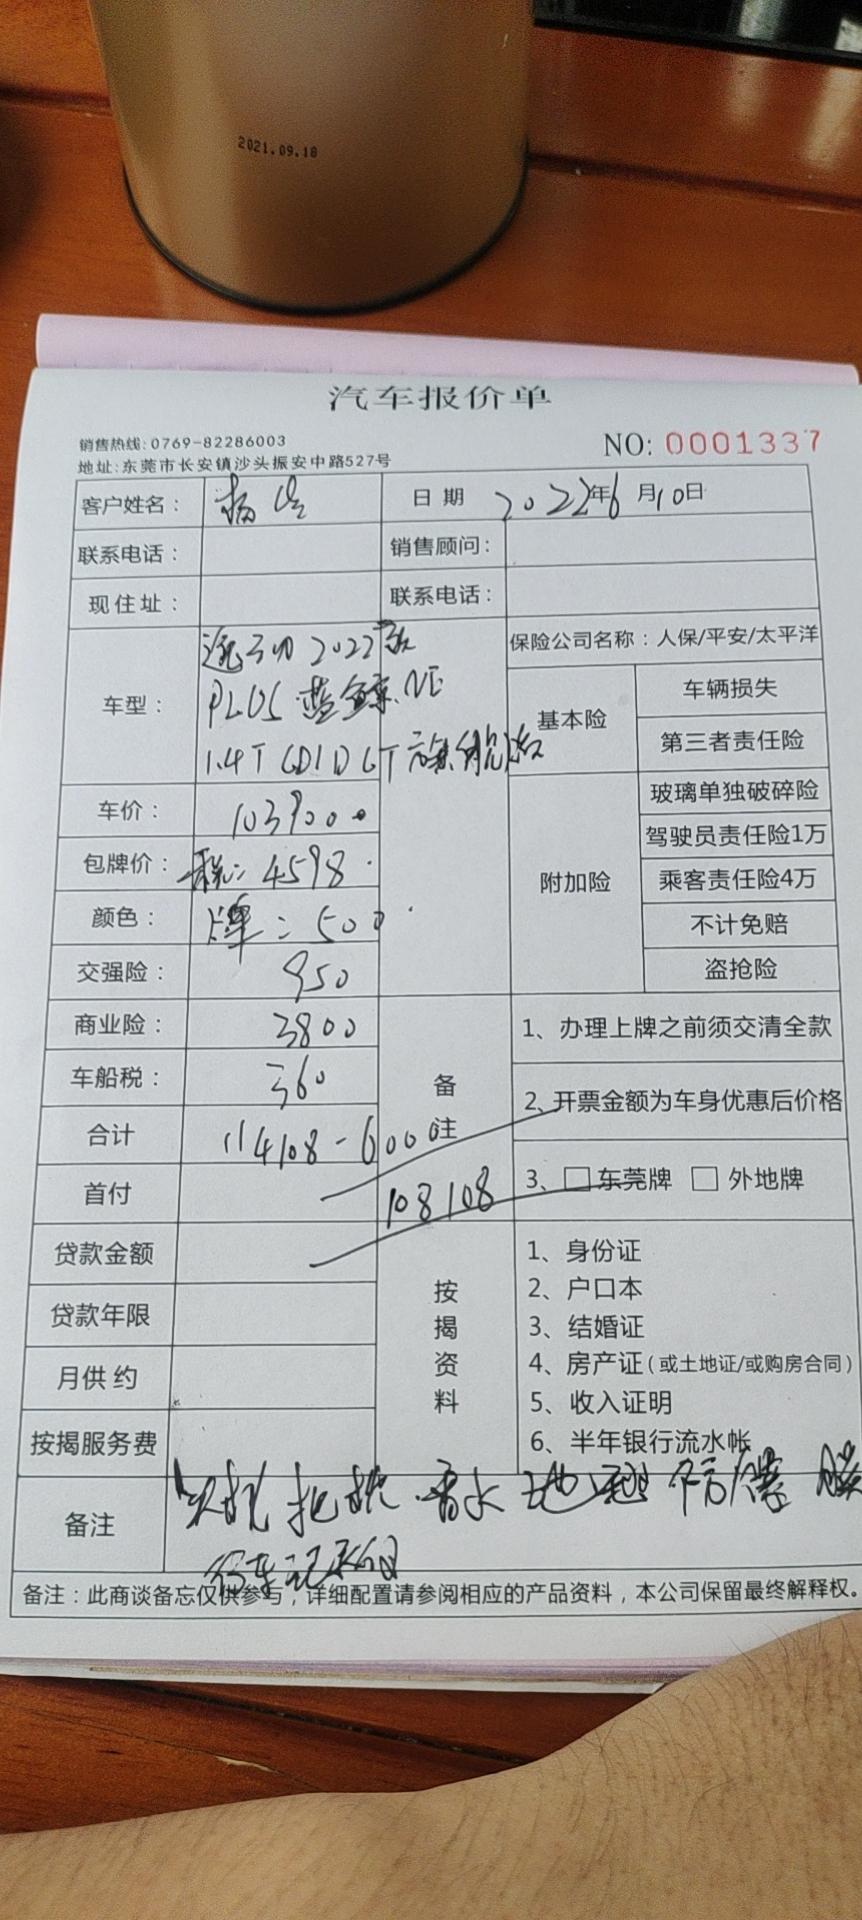 2021.09.18
汽车报价单
销售热线:0769-82286003
NO: 0001337
地址:东莞市长安镇沙头振安中路527号
客户姓名: 杨 日期 2022年6月10日
联系电话: 销售顾问:
现住址: 联系电话:
车型: 逸动 2022款
PLUS 蓝鲸NE
1.4T GDI DCT 旗舰
保险公司名称:人保/平安/太平洋
基本险
车辆损失
第三者责任险
附加险
玻璃单独破碎险
驾驶员责任险1万
乘客责任险4万
不计免赔
盗抢险
车价: 103900
包牌价: 税: 4598
颜色: 牌: 500
交强险: 950
商业险: 3800
车船税: 360
合计 114108-6000
首付 108108
贷款金额
贷款年限
月供约
按揭服务费
备注
1、办理上牌之前须交清全款
2、开票金额为车身优惠后价格
3、□东莞牌 □外地牌
按揭资料
1、身份证
2、户口本
3、结婚证
4、房产证(或土地证/或购房合同)
5、收入证明
6、半年银行流水帐
备注 香水 地毯 防爆膜
行车记录仪
备注:此商谈备忘仅供参与,详细配置请参阅相应的产品资料,本公司保留最终解释权。